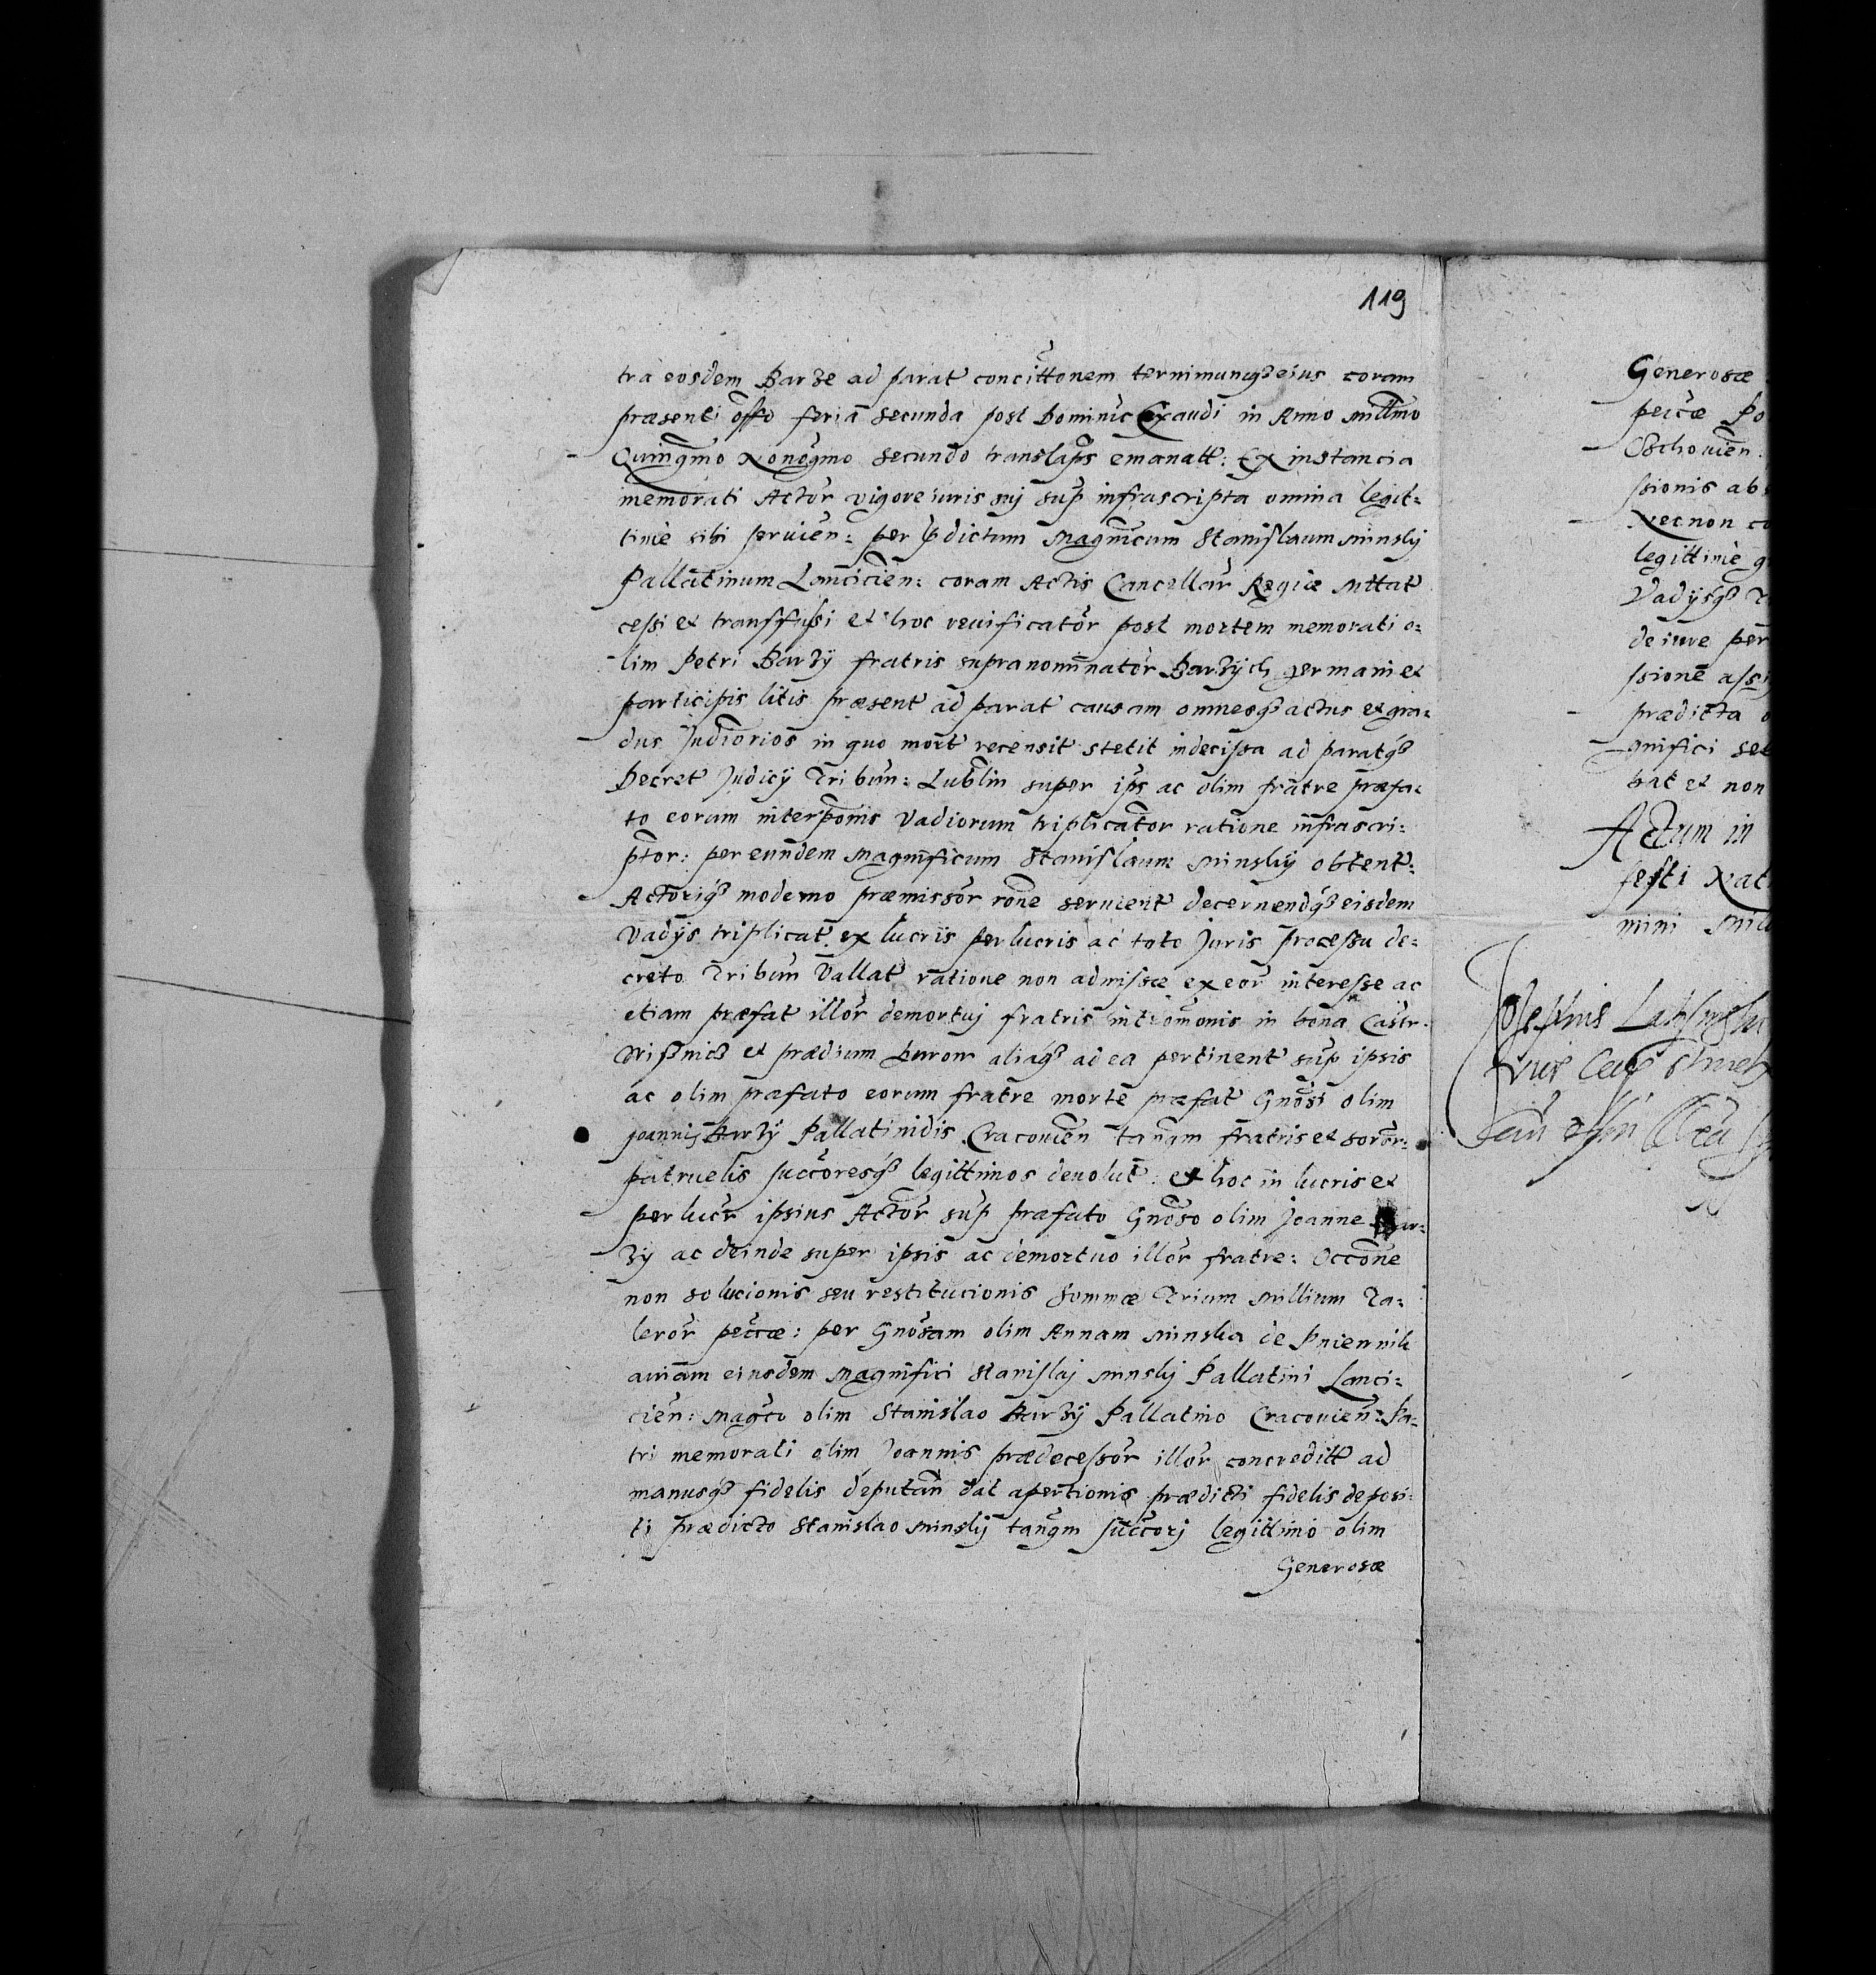 119
tra eosdem Barze ad parat concittonem terminumq3 eius coram
præsenti offo feria secunda post Dominic Exaudi in Anno Millmo
Quingmo Nonogmo secundo translaps emanatt: Ex instancia
memorati Actor vigore iuris sui sup infrascripta omnia legit=
time sibi servien: per pdictum Magnicum Stanislaum Minsky
Pallatinum Lancicien: coram Actis Cancellar Regiæ Mttat
cessi et transfusi et hoc reuificator post mortem memorati o=
lim Petri Barzÿ fratris supranominator Barzÿch germani et
participis litis præsent ad parat causam omnesq3 actus et gra=
dus Judiorios in quo mort recensit stetit indecissa ad paratq3
Decret Judicÿ Tribun: Lublin super ips ac olim fratre præfa=
to eorum interponis Vadiorum triplicator ratione infrascri=
ptor: per eundem Magnificum Stanislaum Minskÿ obtent:
Actoriq3 moderno præmissor rone servient decernendq3 eisdem
Vadÿs triplicat ex lucriis perlucris ac toto Juris processu de=
creto Tribun Vallat ratione non admissæ ex eor interesse ac
etiam præfat illor demortuj fratris intromonis in bona Castr
et prædium aliaq3 ad ea pertinent sup ipsis
ac olim præfato eorum fratre morte præfat Gnosi olim
Joannis Barzÿ Pallatinidis Cracovien tanqm fratris et soror=
patruelis succoresq3 legittimos devolut: et hoc in lucris et
perlucr ipsius Actor sup præfato Gnoso olim Joanne Bar=
zÿ ac deinde super ipsis ac demortuo illor fratre: Occone
non solucionis seu restitucionis Sommæ Trium Millium Ta=
leror peccæ: per Gnosam olim Annam Minska de Pniewnik
aviam eiusdem Magnifici Stanislaj Minskj Pallatini Lanci=
cien: Magco olim Stanislao Barzÿ Pallatino Cracovien: Pa=
tri memorati olim Joannis prædecessor illor concreditt ad
manusq3 fidelis deputan dat apertionis prædicti fidelis deposi=
ti prædicto Stanislao Minskÿ tanqm succorj legittimo olim
Generosæ
Generosæ
Po
ssionis ab
Necnon co
legittime
Vadÿsq3
de iure per
ssione
prædicta
gnifici
bat et non
Actum in
festi Nat
mini Mill